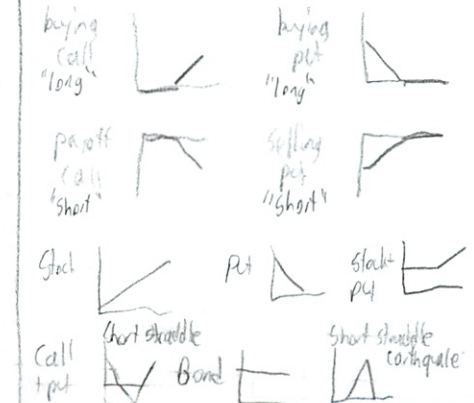 buying
call
"long"
buying
put
"long"
payoff
call
"short"
Selling
put
"short"
Stock
Put
Stock+
put
Short straddle
Call
+ put
Bond
Short straddle
Earthquake